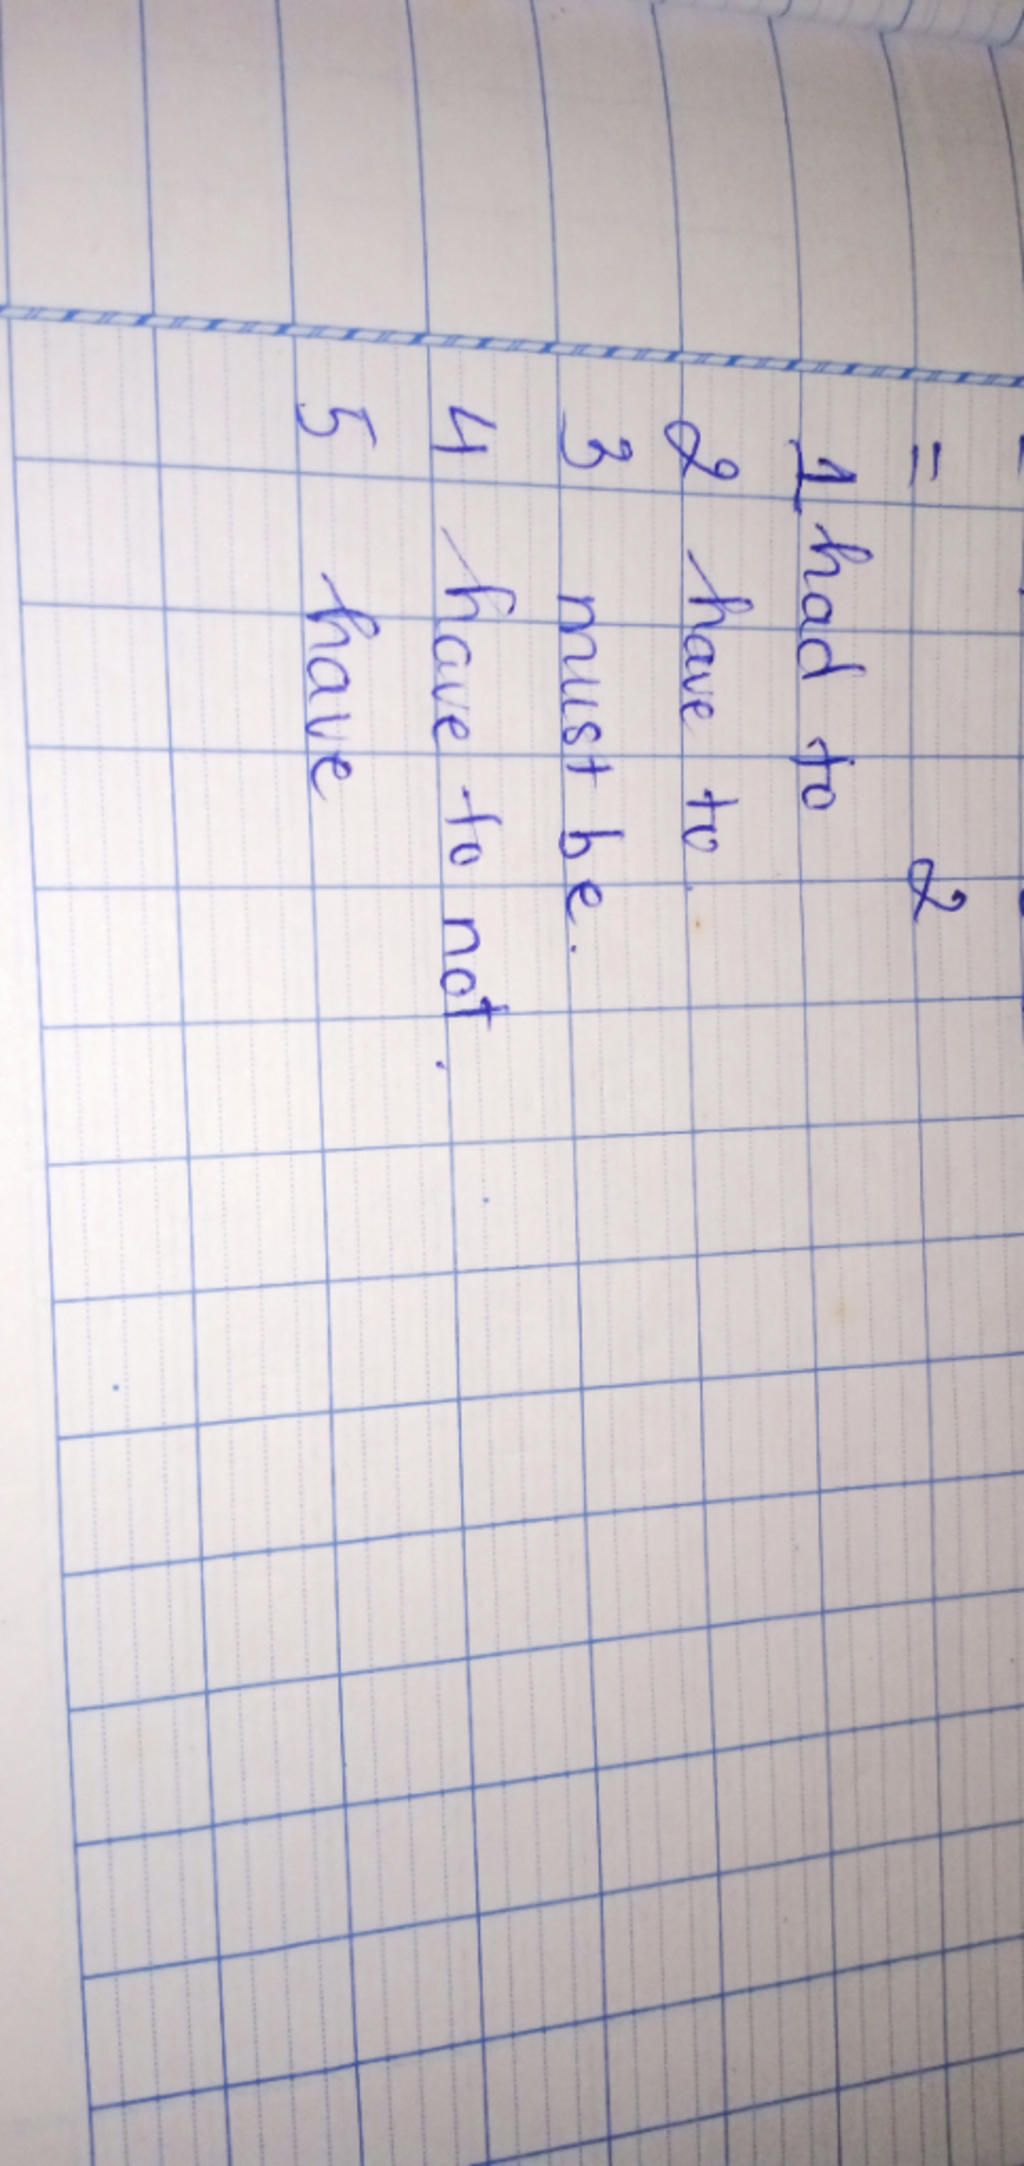 = 2
1 had to
2 have to.
3 must be.
4 have to not.
5 have